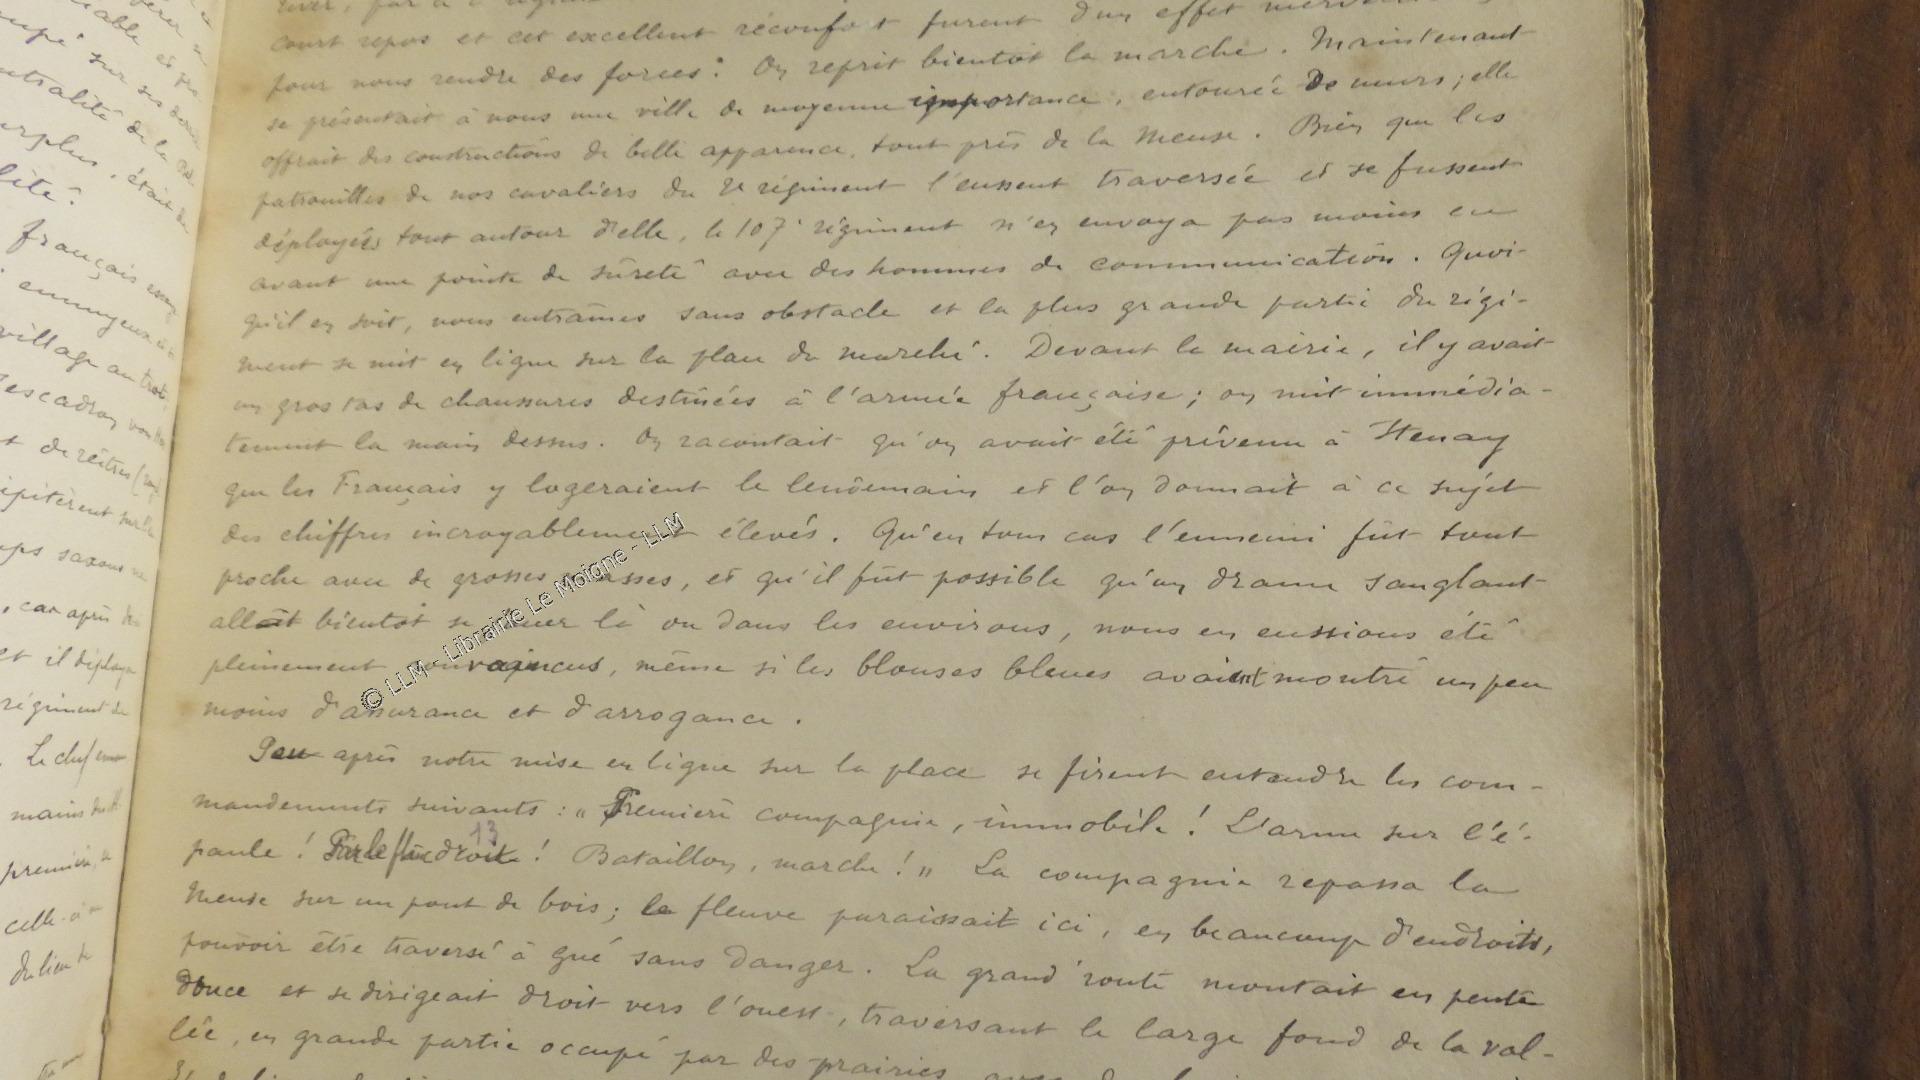 court repos et cet excellent réconfort furent d'un effet
pour nous rendre des forces. On reprit bientôt la marche. Maintenant
se présentait à nous une ville de moyenne importance, entourée de murs ; elle
offrait des constructions de belle apparence, tout près de la Meuse. Bien que les
patrouilles de nos cavaliers du 2e régiment l'eussent traversée et se fussent
déployées tout autour d'elle, le 107e régiment n'en envoya pas moins en
avant une pointe de sûreté avec des hommes de communication. Quoi-
qu'il en soit, nous entrâmes sans obstacle et la plus grande partie du régi-
ment se mit en ligne sur la place du marché. Devant la mairie, il y avait
un gros tas de chaussures destinées à l'armée française ; on mit immédia-
tement la main dessus. On racontait qu'on avait été prévenu à Stenay
que les Français y logeraient le lendemain et l'on donnait à ce sujet
des chiffres incroyablement élevés. Qu'en tous cas l'ennemi fût tout
proche avec de grosses masses, et qu'il fût possible qu'un drame sanglant
allât bientôt se jouer là ou dans les environs, nous en eussions été
pleinement convaincus, même si les blouses bleues avaient montré un peu
moins d'assurance et d'arrogance.
Peu après notre mise en ligne sur la place se firent entendre les com-
mandements suivants : " Première compagnie, immobile ! L'arme sur l'é-
13
paule ! Par le flanc droit ! Bataillon, marche ! " La compagnie repassa la
Meuse sur un pont de bois ; le fleuve paraissait ici, en beaucoup d'endroits,
pouvoir être traversé à gué sans danger. La grand'route montait en pente
douce et se dirigeait droit vers l'ouest, traversant le large fond de la val-
lée, en grande partie occupé par des prairies
français
village au trot
l'escadron von
et de reîtres
, car après
et il déploya
régiment de
. Le chef
mains du
première
celle-ci
© LLM - Librairie Le Moigne - LLM